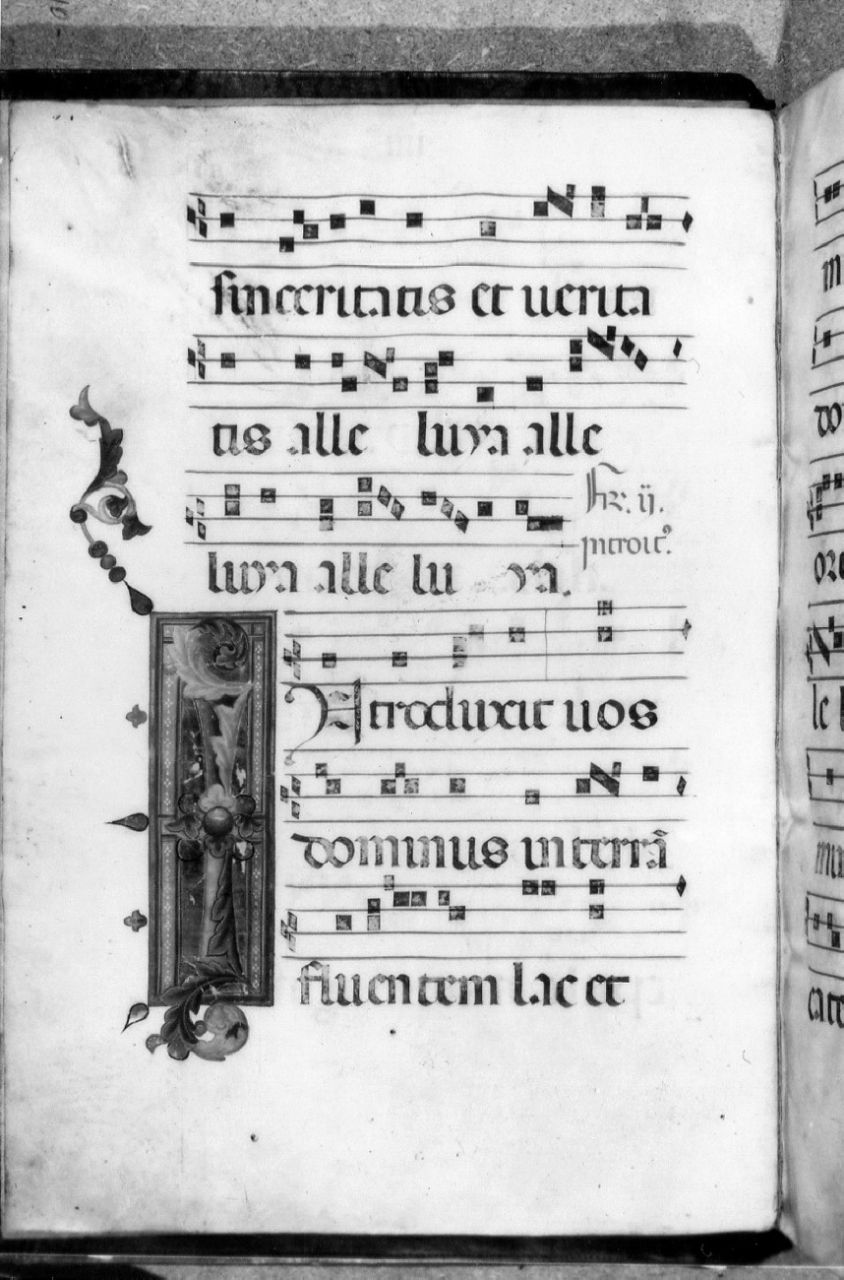 sinceritatis et uerita
tis alle luya alle
luya alle lu ya.
Fr. ij.
introit⁹.
Introduxit uos
dominus in terrā
fluentem lac et